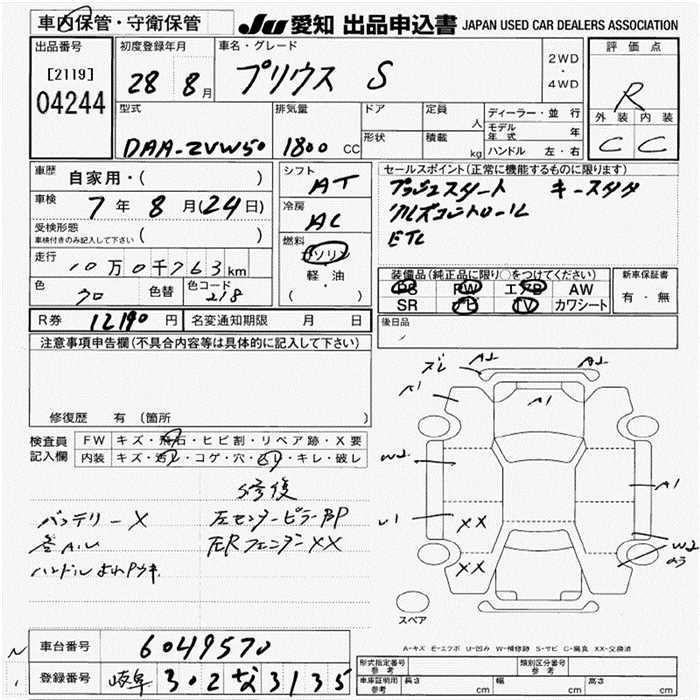 車内保管・守衛保管 JU 愛知 出品申込書 JAPAN USED CAR DEALERS ASSOCIATION
出品番号 [2119] 04244
初度登録年月 28 8月
車名・グレード プリウス S
2WD ・ 4WD
評価点 R
外装 内装
C C
型式 DAA-ZVW50
排気量 1800 cc
ドア 形状
定員 人
積載 kg
ディーラー・並行
モデル年式 年
ハンドル 左・右
車歴 自家用・( )
車検 7年 8月(24日)
受検形態 車検付きのみ記入して下さい ( )
走行 10万0千763km
色 クロ 色替 色コード 218
シフト AT
冷房 AC
燃料 ガソリン 軽・油 ( ・ )
セールスポイント(正常に機能するものに限ります)
プッシュスタート キースタダ
クルズコントロール
ETC
装備品(純正品に限り○をつけてください) 新車保証書
PS PW エアB AW 有・無
SR ナビ TV カワシート
R券 12190円 名変通知期限 月 日
後日品
注意事項申告欄(不具合内容等は具体的に記入して下さい)
修復歴 有(箇所 )
検査員記入欄
FW キズ・飛石・ヒビ割・リペア跡・X要
内装 キズ・汚レ・コゲ・穴・スレ・キレ・破レ
修復
バッテリーX 左センターピラーBP
左RフェンダーXX
ズレ A2 A2
A1 A1
W2 A1
U1 XX
XX W2
スペア
A-キズ E-エクボ U-凹み W-補修跡 S-サビ C-腐食 XX-交換済
車台番号 6049570
登録番号 岐阜 302 な 3135
形式指定番号 参考
類別区分番号 参考
車庫証明用 参考 長さ cm 幅 cm 高さ cm